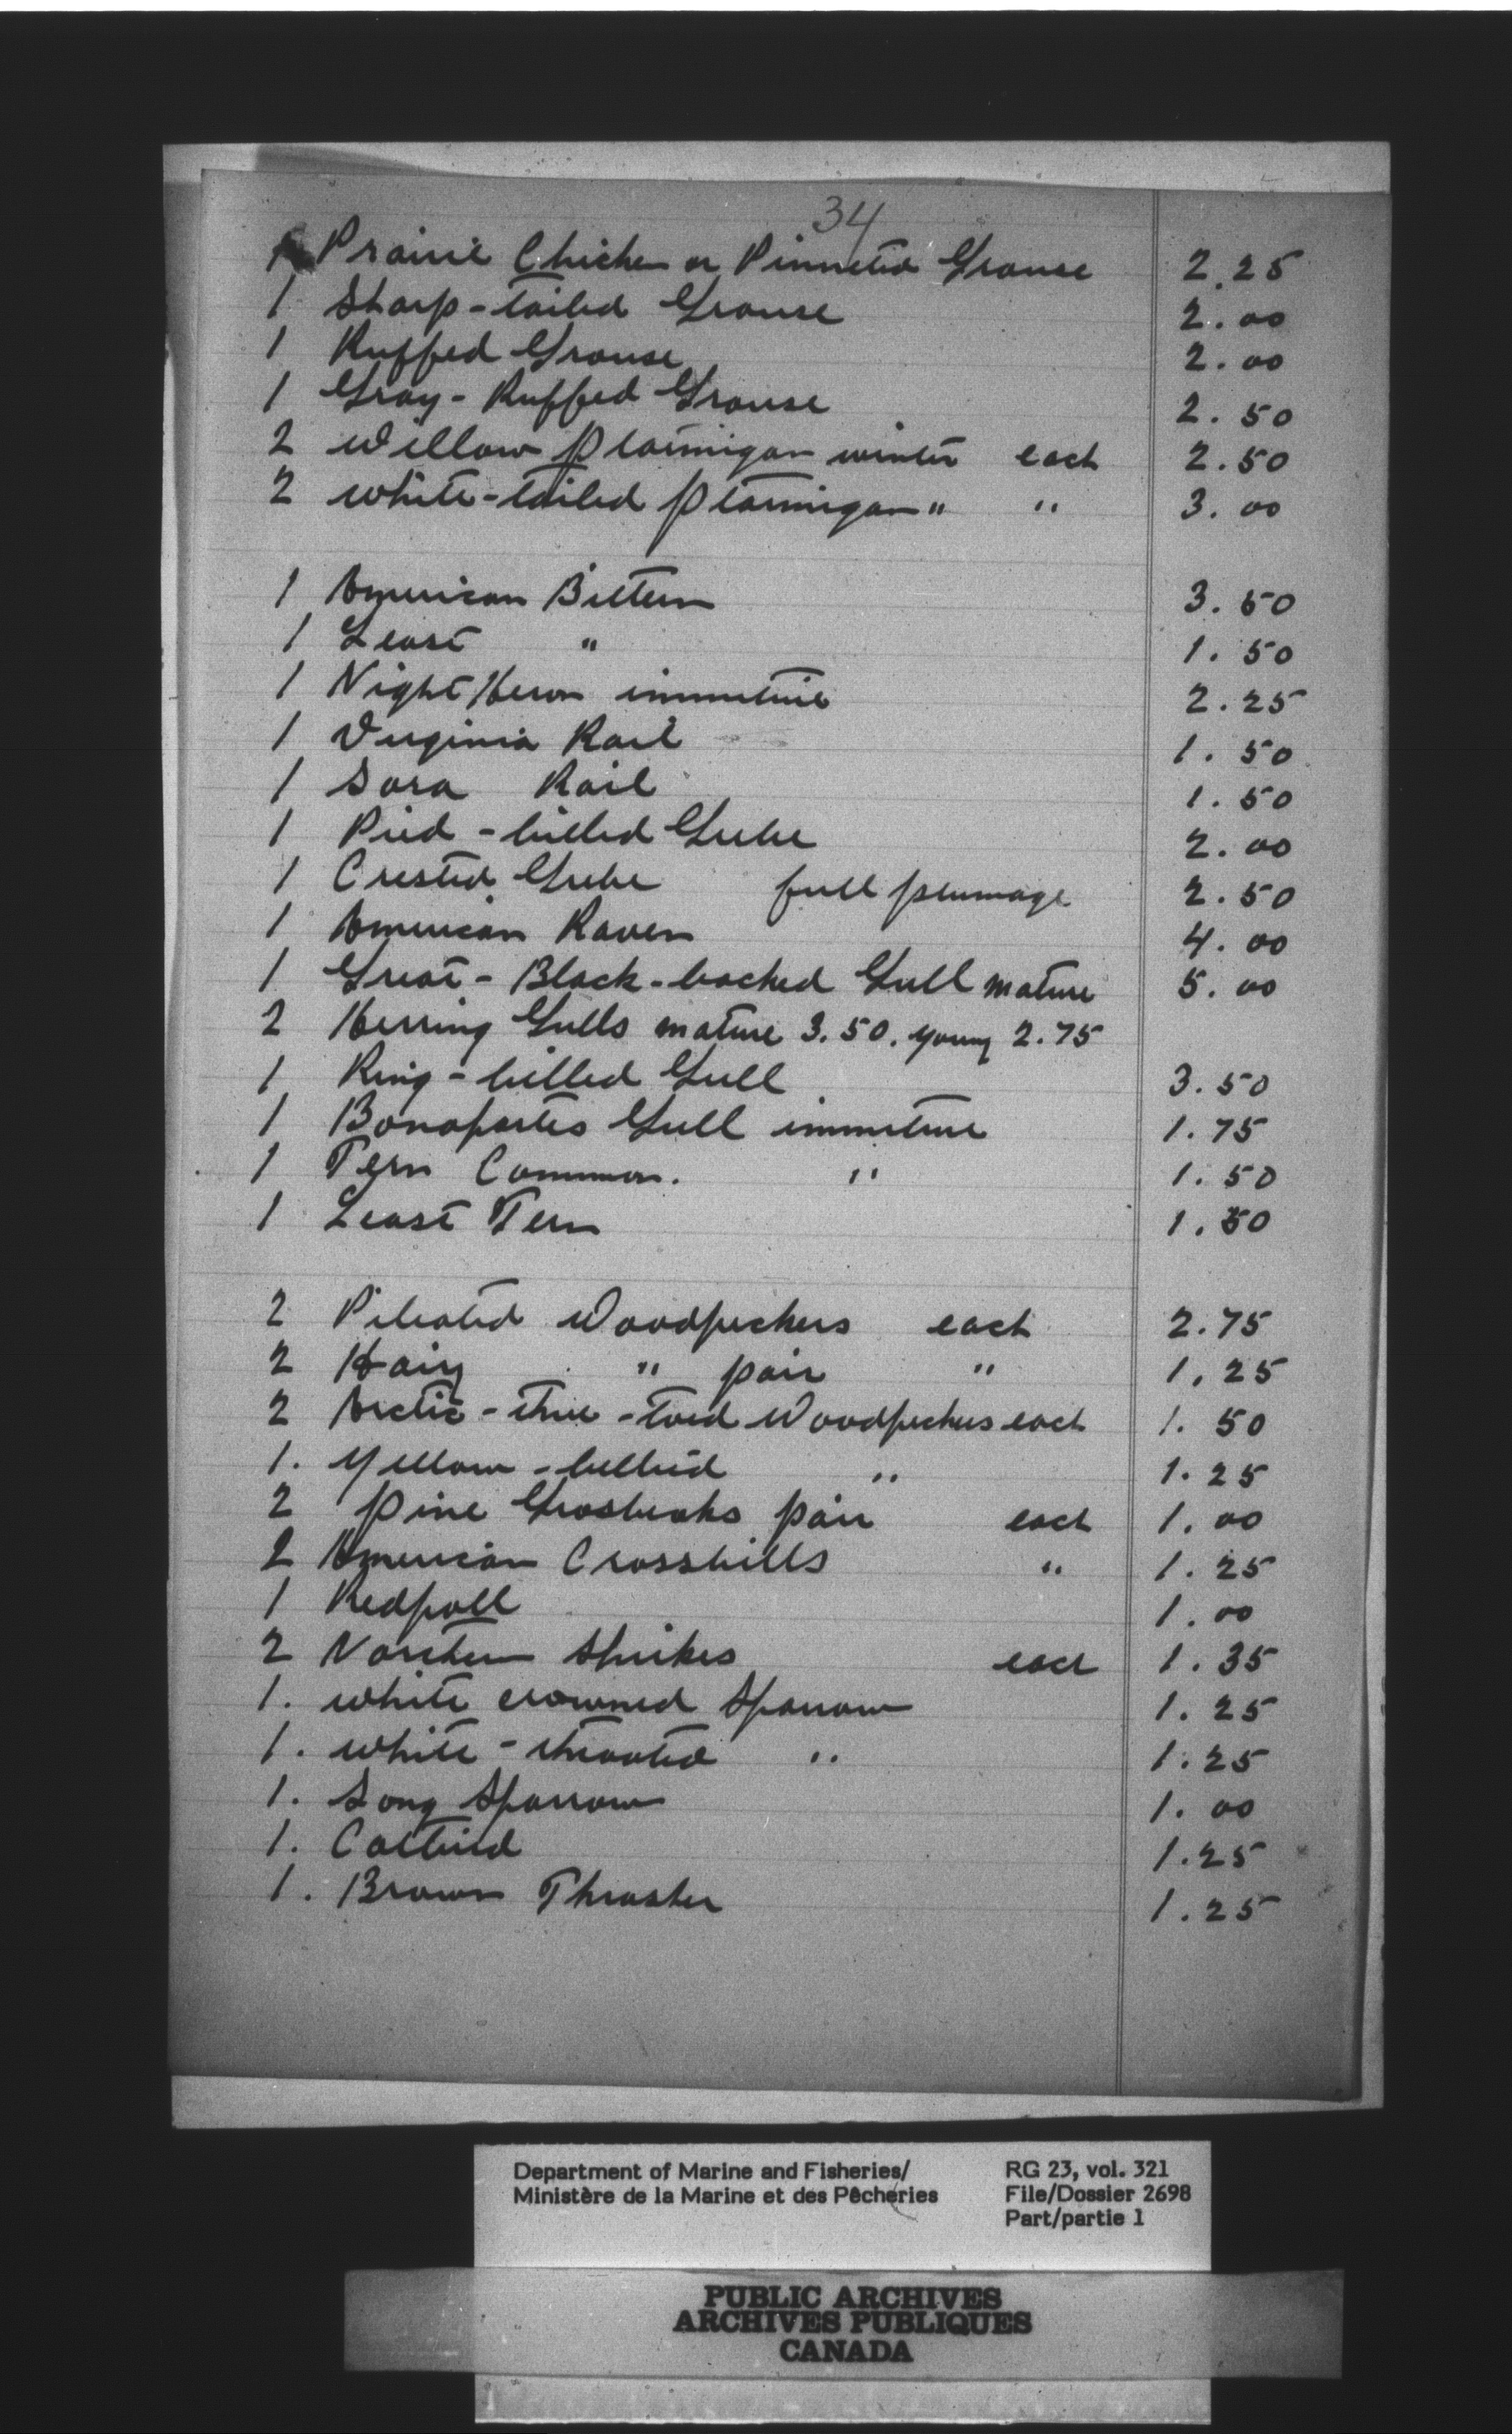 34
1 Prairie Chicken or Pinneted Grouse 2.25
1 Sharp-tailed Grouse 2.00
1 Ruffed Grouse 2.00
1 Gray-Ruffed Grouse 2.50
2 Willow Ptarmigan winter each 2.50
2 White-tailed Ptarmigan " " 3.00
1 American Bittern 3.50
1 Least " 1.50
1 Night Heron immature 2.25
1 Virginia Rail 1.50
1 Sora Rail 1.50
1 Pied-billed Grebe 2.00
1 Crested Grebe full plumage 2.50
1 American Raven 4.00
1 Great-Black-backed Gull mature 5.00
2 Herring Gulls mature 3.50. young 2.75
1 Ring-billed Gull 3.50
1 Bonapartes Gull immature 1.75
1 Tern Common. " 1.50
1 Least Tern 1.50
2 Pileated Woodpeckers each 2.75
2 Hairy " pair " 1.25
2 Arctic-three-toed Woodpeckers each 1.50
1. Yellow-bellied " 1.25
2 Pine Grosbeaks pair each 1.00
2 American Crossbills " 1.25
1 Redpoll 1.00
2 Northern Shrikes each 1.35
1. White crowned Sparrow 1.25
1. White-throated " 1.25
1. Song Sparrow 1.00
1. Catbird 1.25
1. Brown Thrasher 1.25
Department of Marine and Fisheries/ RG 23, vol. 321
Ministère de la Marine et des Pêcheries File/Dossier 2698
Part/partie 1
PUBLIC ARCHIVES
ARCHIVES PUBLIQUES
CANADA